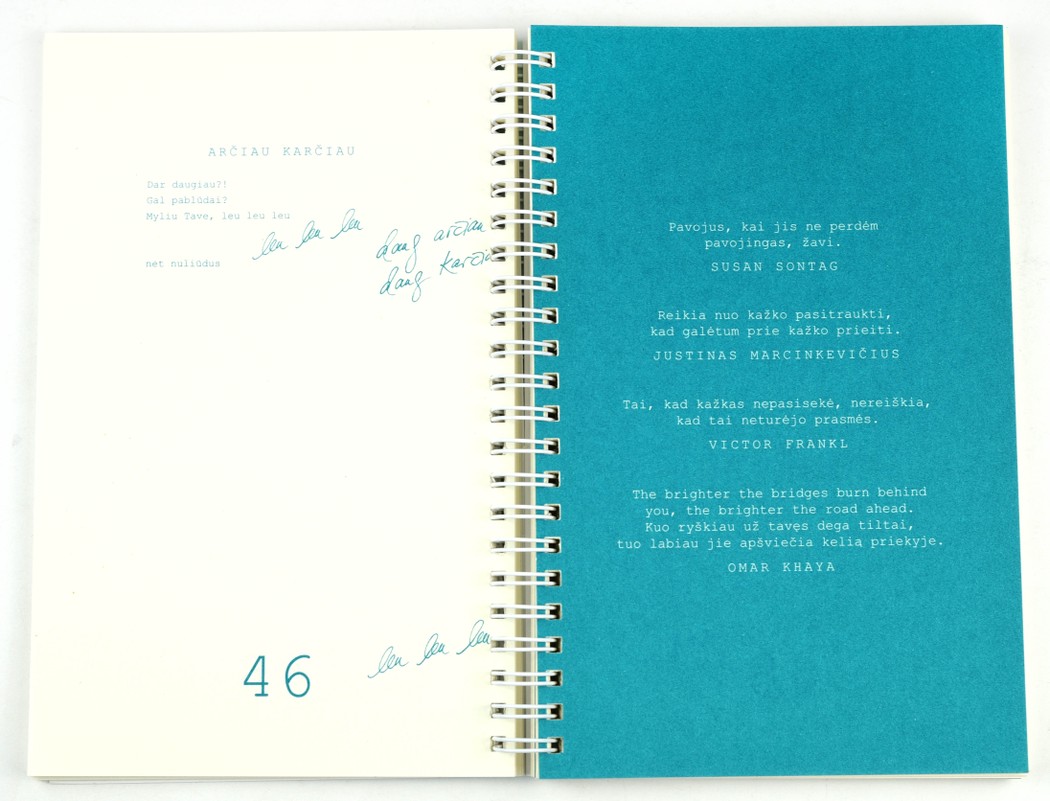 ARČIAU KARČIAU
Dar daugiau?!
Gal pablūdai?
Myliu Tave, leu leu leu
leu leu leu
daug arčiau
net nuliūdus
daug karčia
leu leu leu
46
Pavojus, kai jis ne perdėm
pavojingas, žavi.
SUSAN SONTAG
Reikia nuo kažko pasitraukti,
kad galėtum prie kažko prieiti.
JUSTINAS MARCINKEVIČIUS
Tai, kad kažkas nepasisekė, nereiškia,
kad tai neturėjo prasmės.
VICTOR FRANKL
The brighter the bridges burn behind
you, the brighter the road ahead.
Kuo ryškiau už tavęs dega tiltai,
tuo labiau jie apšviečia kelią priekyje.
OMAR KHAYA